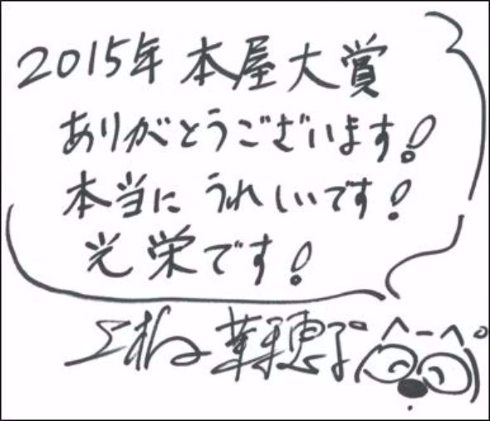 2015年 本屋大賞
ありがとうございます!
本当に うれしいです!
光栄です!
上橋菜穂子